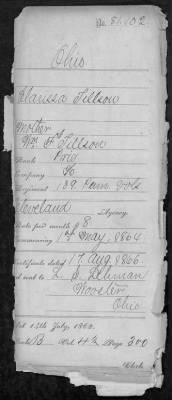 No. 81,102
Ohio
Clarissa Tillson
Mother
Wm. A. Tillson
Rank Priv
Company
Regiment 189 Penn. Vols.
Cleveland Agency.
Rate per month $8
Commencing 1st May, 1864
Certificate dated 17 Aug. 1866.
and sent to
Wooster
Ohio
Act 14th July, 1862.
Book B Vol. 4 Page 300
Clerk.